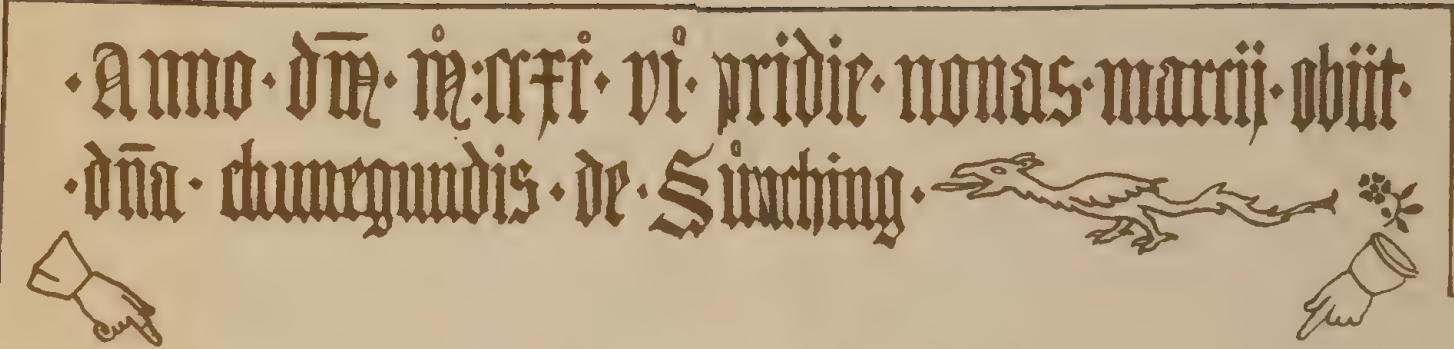 ·Anno· dm̅· m̊:ccxci̊· vi̊· pridie· nonas· marcij· obiit·
·dn̅a· chunegundis· de· Sůnching·